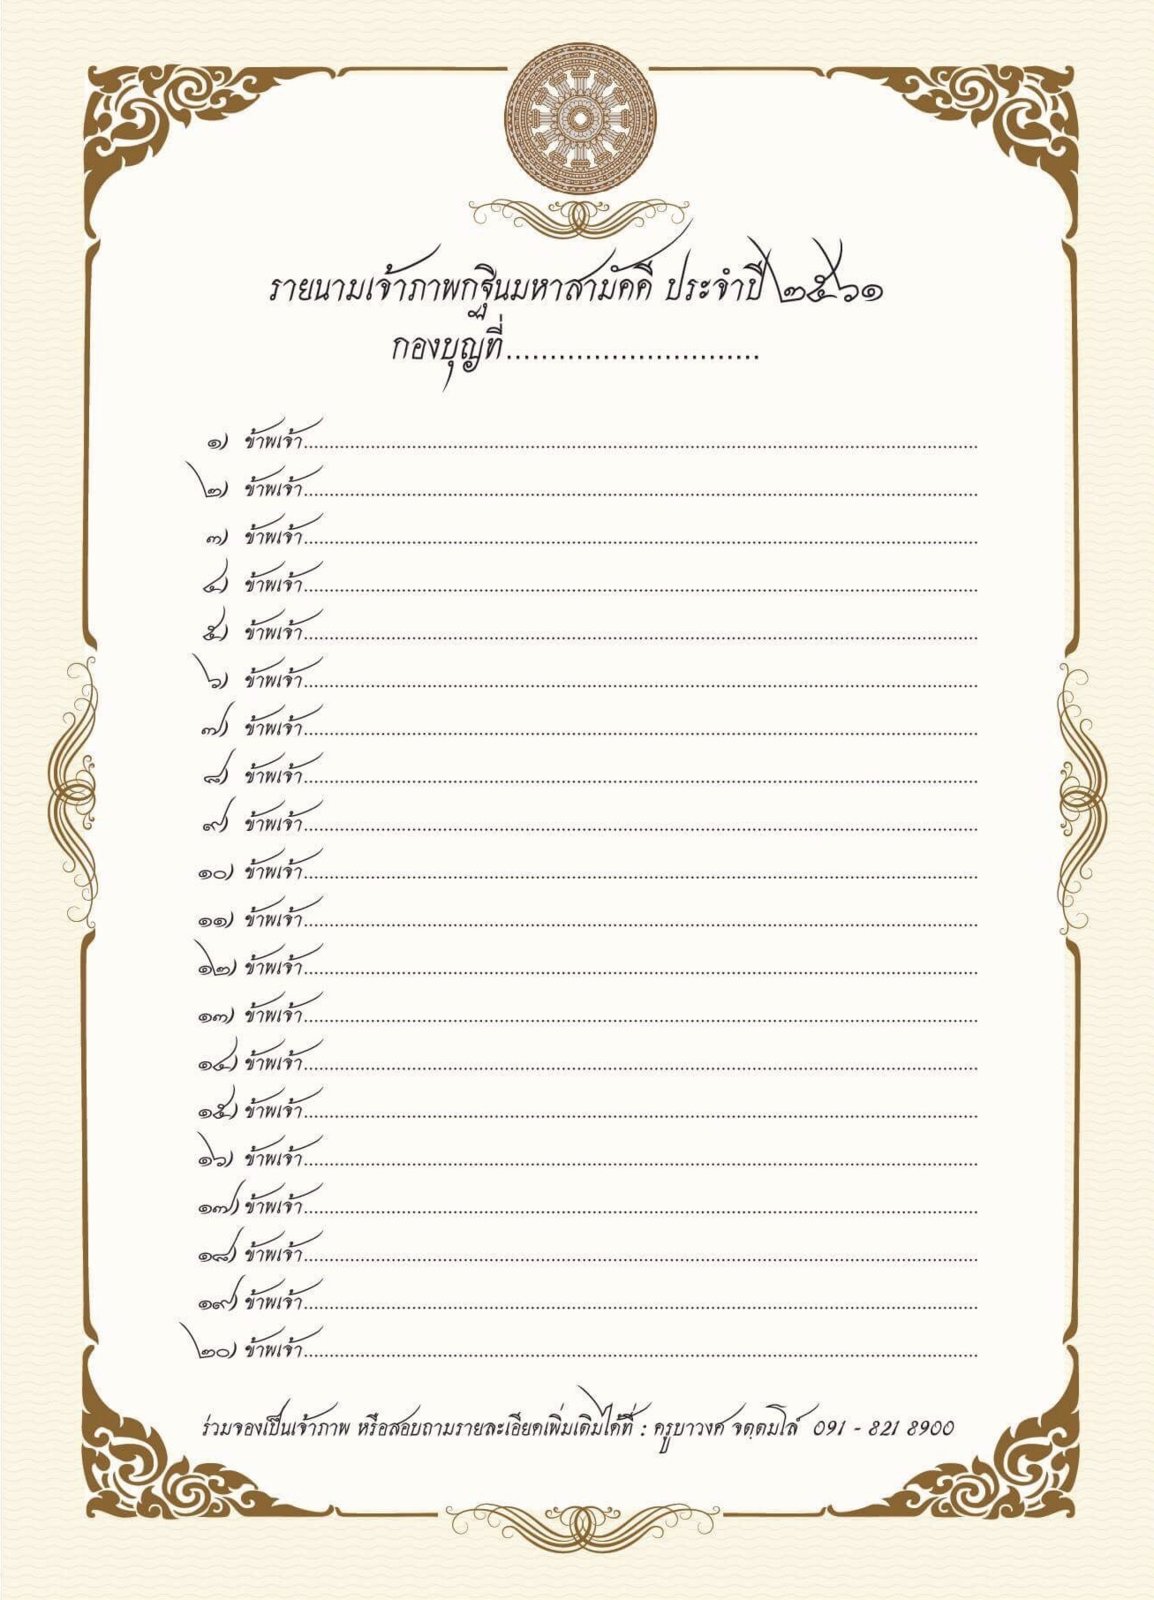 รายนามเจ้าภาพกฐินมหาสามัคคี ประจำปี ๒๕๖๑
กองบุญที่.............................
๑) ข้าพเจ้า..............................
๒) ข้าพเจ้า..............................
๓) ข้าพเจ้า..............................
๔) ข้าพเจ้า..............................
๕) ข้าพเจ้า..............................
๖) ข้าพเจ้า..............................
๗) ข้าพเจ้า..............................
๘) ข้าพเจ้า..............................
๙) ข้าพเจ้า..............................
๑๐) ข้าพเจ้า..............................
๑๑) ข้าพเจ้า..............................
๑๒) ข้าพเจ้า..............................
๑๓) ข้าพเจ้า..............................
๑๔) ข้าพเจ้า..............................
๑๕) ข้าพเจ้า..............................
๑๖) ข้าพเจ้า..............................
๑๗) ข้าพเจ้า..............................
๑๘) ข้าพเจ้า..............................
๑๙) ข้าพเจ้า..............................
๒๐) ข้าพเจ้า..............................
ร่วมจองเป็นเจ้าภาพ หรือสอบถามรายละเอียดเพิ่มเติมได้ที่ : ครูบาวงศ์ จตฺตมโล 091 - 821 8900